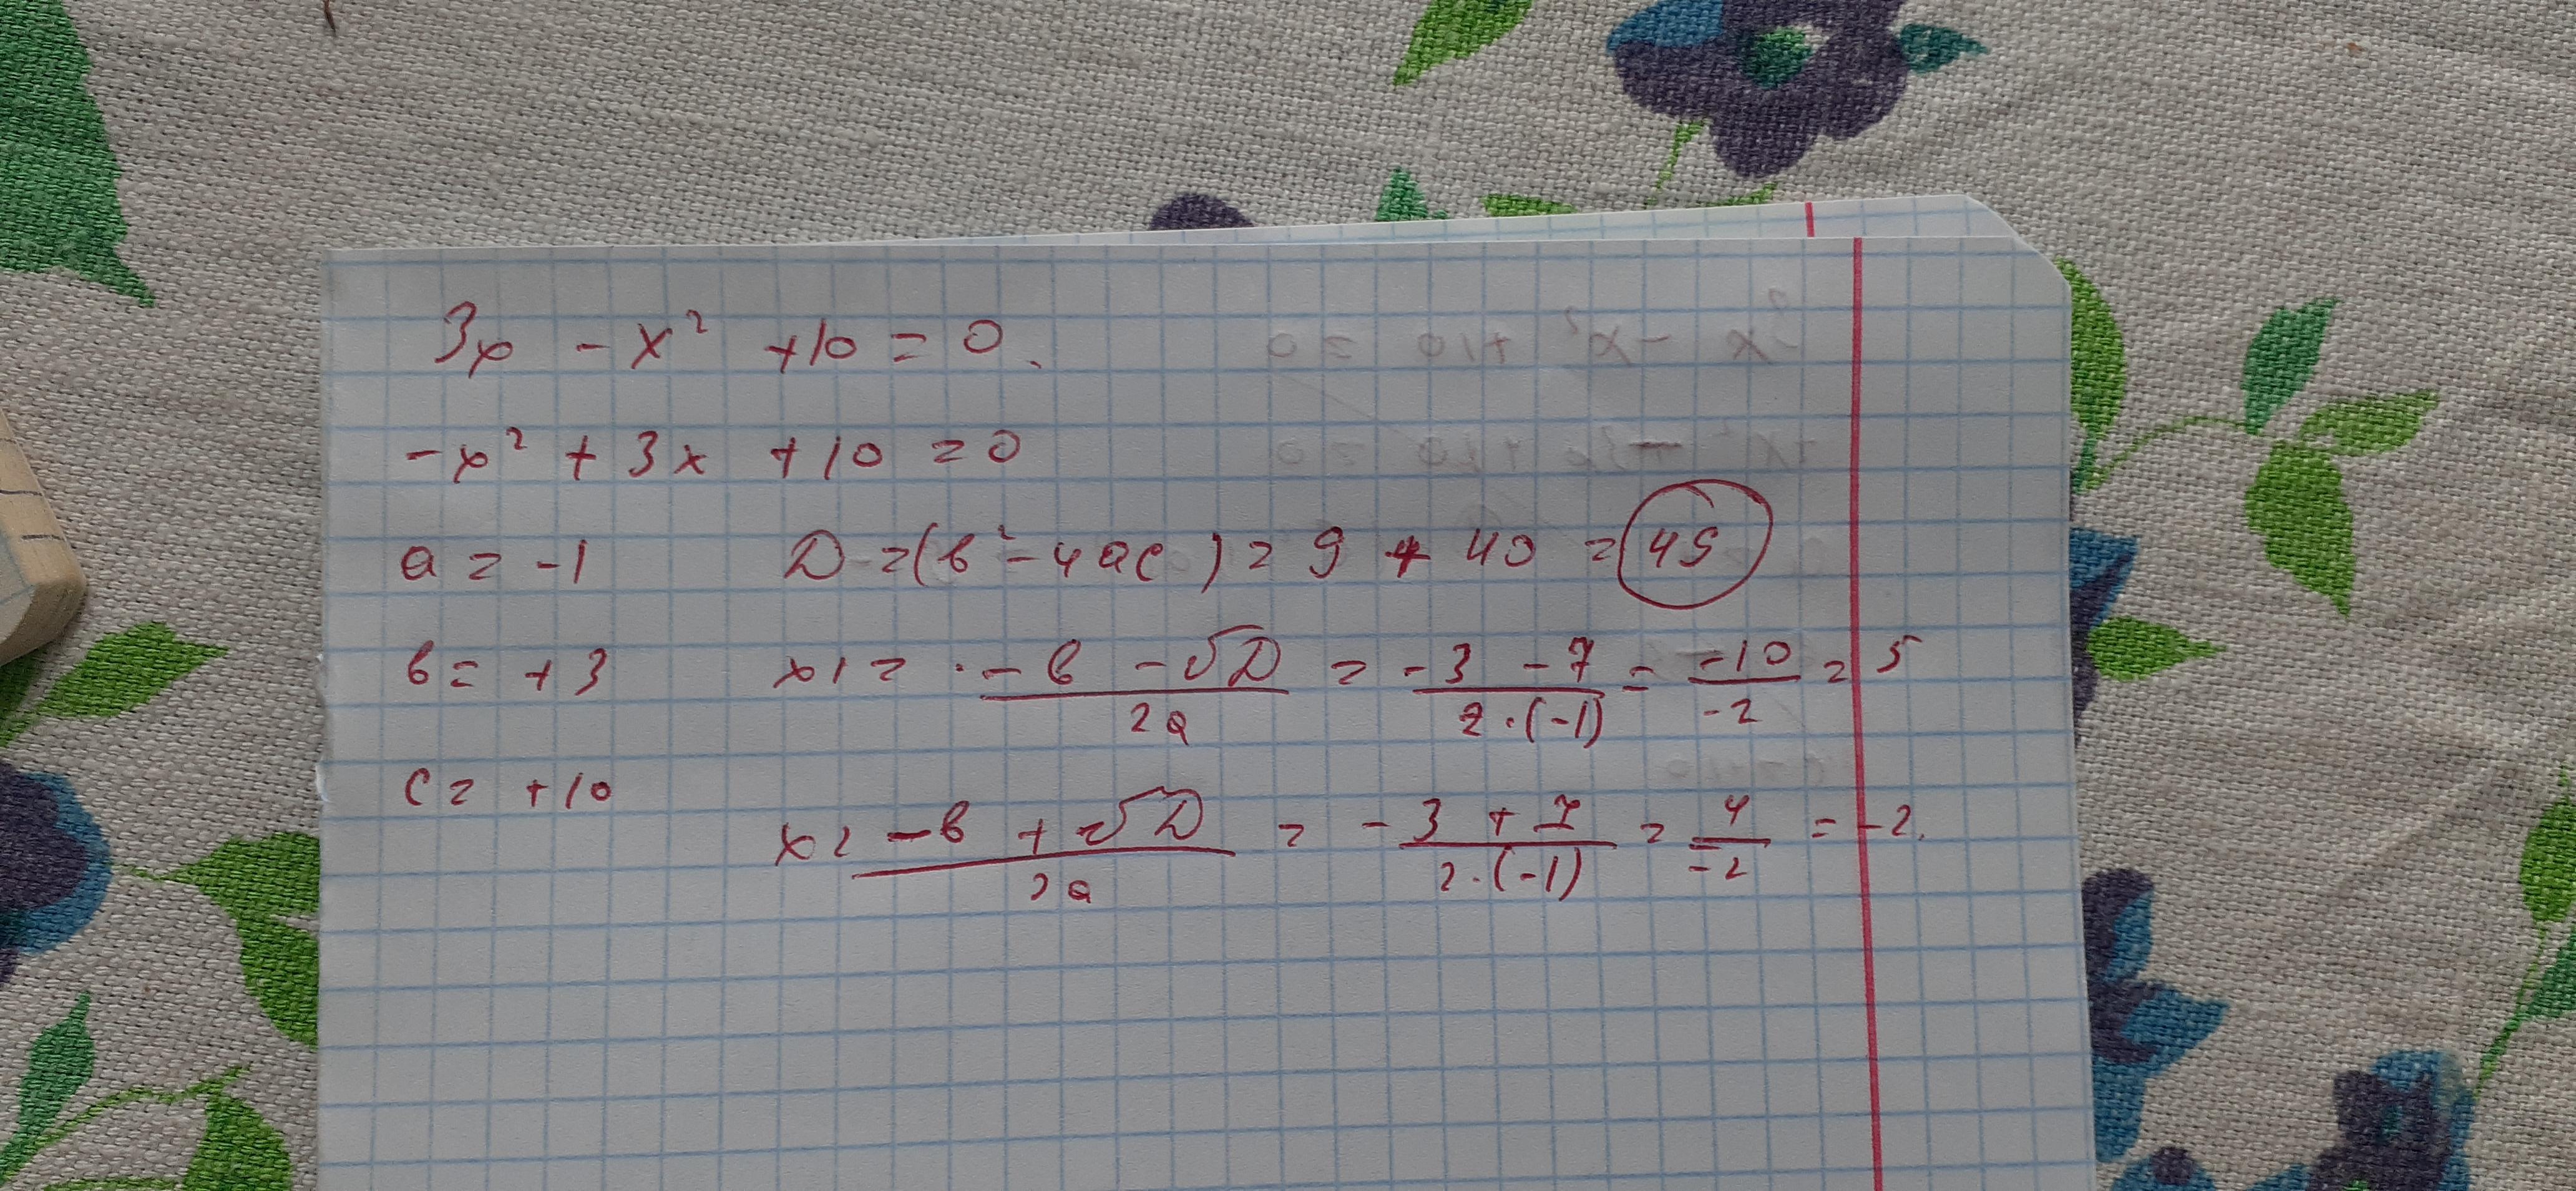 3x - x² + 10 = 0.
-x² + 3x + 10 = 0
a = -1 D = (b² - 4ac) = 9 + 40 = 49
b = +3 x1 = -b - √D / 2a = -3 - 7 / 2·(-1) = -10 / -2 = 5
c = +10
x2 -b + √D / 2a = -3 + 7 / 2·(-1) = 4 / -2 = -2.